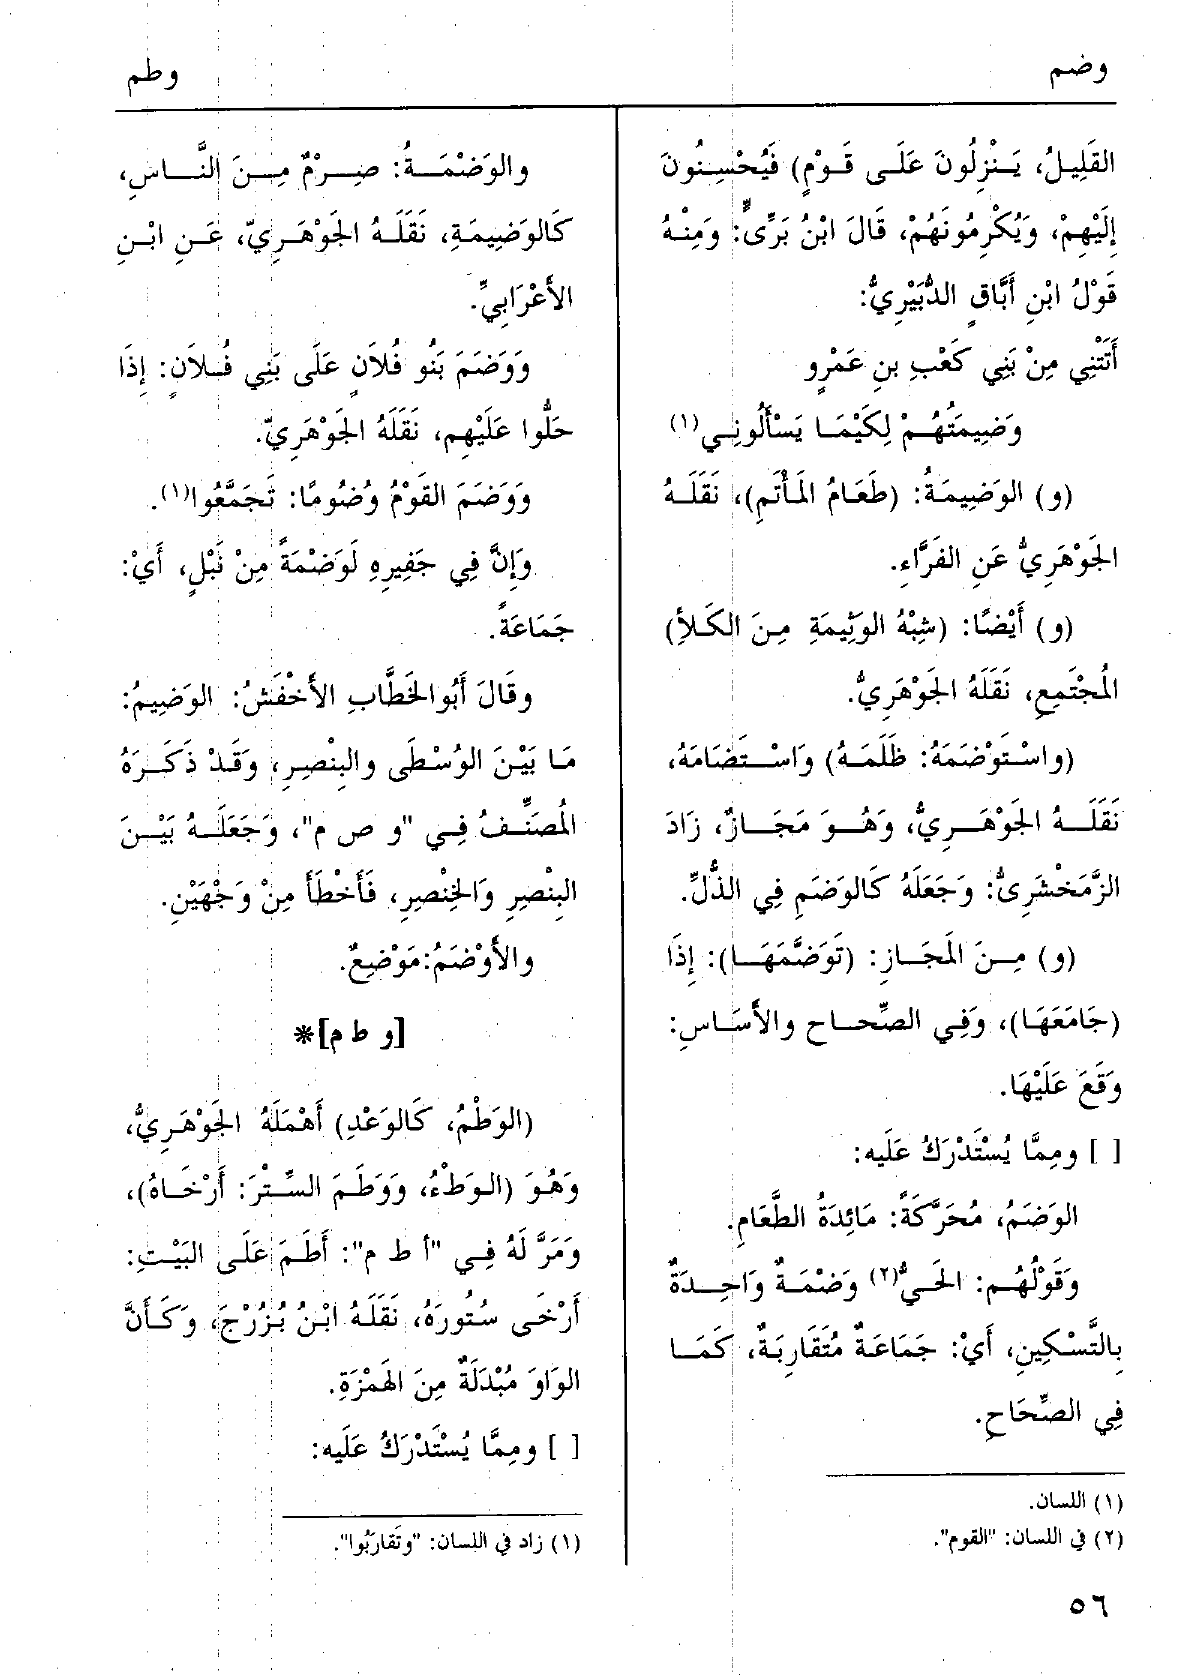 وضم
وطم
القَلِيلُ، يَنْزِلُونَ عَلَى قَوْمٍ) فَيُحْسِنُونَ
إِلَيْهِمْ، وَيُكْرِمُونَهُمْ، قَالَ ابْنُ بَرِّيٍّ: وَمِنْهُ
قَوْلُ ابْنِ أَبَّاقٍ الدُّبَيْرِيُّ:
أَتَتْنِي مِنْ بَنِي كَعْبِ بنِ عَمْرٍو
وَضِيمَتُهُمْ لِكَيْمَا يَسْأَلُونِي(١)
(و) الوَضِيمَةُ: (طَعَامُ المَأْتَمِ)، نَقَلَهُ
الجَوْهَرِيُّ عَنِ الفَرَّاءِ.
(و) أَيْضًا: (شِبْهُ الوَثِيمَةِ مِنَ الكَلأِ)
المُجْتَمِعِ، نَقَلَهُ الجَوْهَرِيُّ.
(واسْتَوْضَمَهُ: ظَلَمَهُ) وَاسْتَضَامَهُ،
نَقَلَهُ الجَوْهَرِيُّ، وَهُوَ مَجَازٌ، زَادَ
الزَّمَخْشَرِىُّ: وَجَعَلَهُ كَالوَضَمِ فِي الذُّلِّ.
(و) مِنَ المَجَازِ: (تَوَضَّمَهَا): إِذَا
(جَامَعَهَا)، وَفِي الصِّحاحِ والأَسَاسِ:
وَقَعَ عَلَيْهَا.
[ ] ومِمَّا يُسْتَدْرَكُ عَلَيه:
الوَضَمُ، مُحَرَّكَةً: مَائِدَةُ الطَّعَامِ.
وَقَوْلُهُم: الحَيُّ(٢) وَضْمَةٌ وَاحِدَةٌ
بِالتَّسْكِينِ، أَيْ: جَمَاعَةٌ مُتَقَارِبَةٌ، كَمَا
فِي الصِّحَاحِ.
(١) اللسان.
(٢) في اللسان: "القوم".
والوَضْمَةُ: صِرْمٌ مِنَ النَّاسِ،
كَالوَضِيمَةِ، نَقَلَهُ الجَوْهَرِيّ، عَنِ ابْنِ
الأَعْرَابِيِّ.
وَوَضَمَ بَنُو فُلاَنٍ عَلَى بَنِي فُلاَنٍ: إِذَا
حَلُّوا عَلَيْهِم، نَقَلَهُ الجَوْهَرِيّ.
وَوَضَمَ القَوْمُ وُضُومًا: تَجَمَّعُوا(١).
وَإِنَّ فِي جَفِيرِهِ لَوَضْمَةً مِنْ نَبْلٍ، أَيْ:
جَمَاعَةً.
وقَالَ أَبُو الخَطَّابِ الأَخْفَشُ: الوَضِيمُ:
مَا بَيْنَ الوُسْطَى والبِنْصِرِ، وَقَدْ ذَكَرَهُ
المُصَنِّفُ فِي "و ص م"، وَجَعَلَهُ بَيْنَ
البِنْصِرِ وَالخِنْصِرِ، فَأَخْطَأَ مِنْ وَجْهَيْنِ.
والأَوْضَمُ: مَوْضِعٌ.
[و ط م]*
(الوَطْمُ، كَالوَعْدِ) أَهْمَلَهُ الجَوْهَرِيُّ،
وَهُوَ (الوَطْءُ، وَوَطَمَ السِّتْرَ: أَرْخَاهُ)،
وَمَرَّ لَهُ فِي "أ ط م": أَطَمَ عَلَى البَيْتِ:
أَرْخَى سُتُورَهُ، نَقَلَهُ ابْنُ بُزُرْجَ، وَكَأَنَّ
الوَاوَ مُبْدَلَةٌ مِنَ الهَمْزَةِ.
[ ] ومِمَّا يُسْتَدْرَكُ عَلَيه:
(١) زاد في اللسان: "وتَقارَبُوا".
٥٦